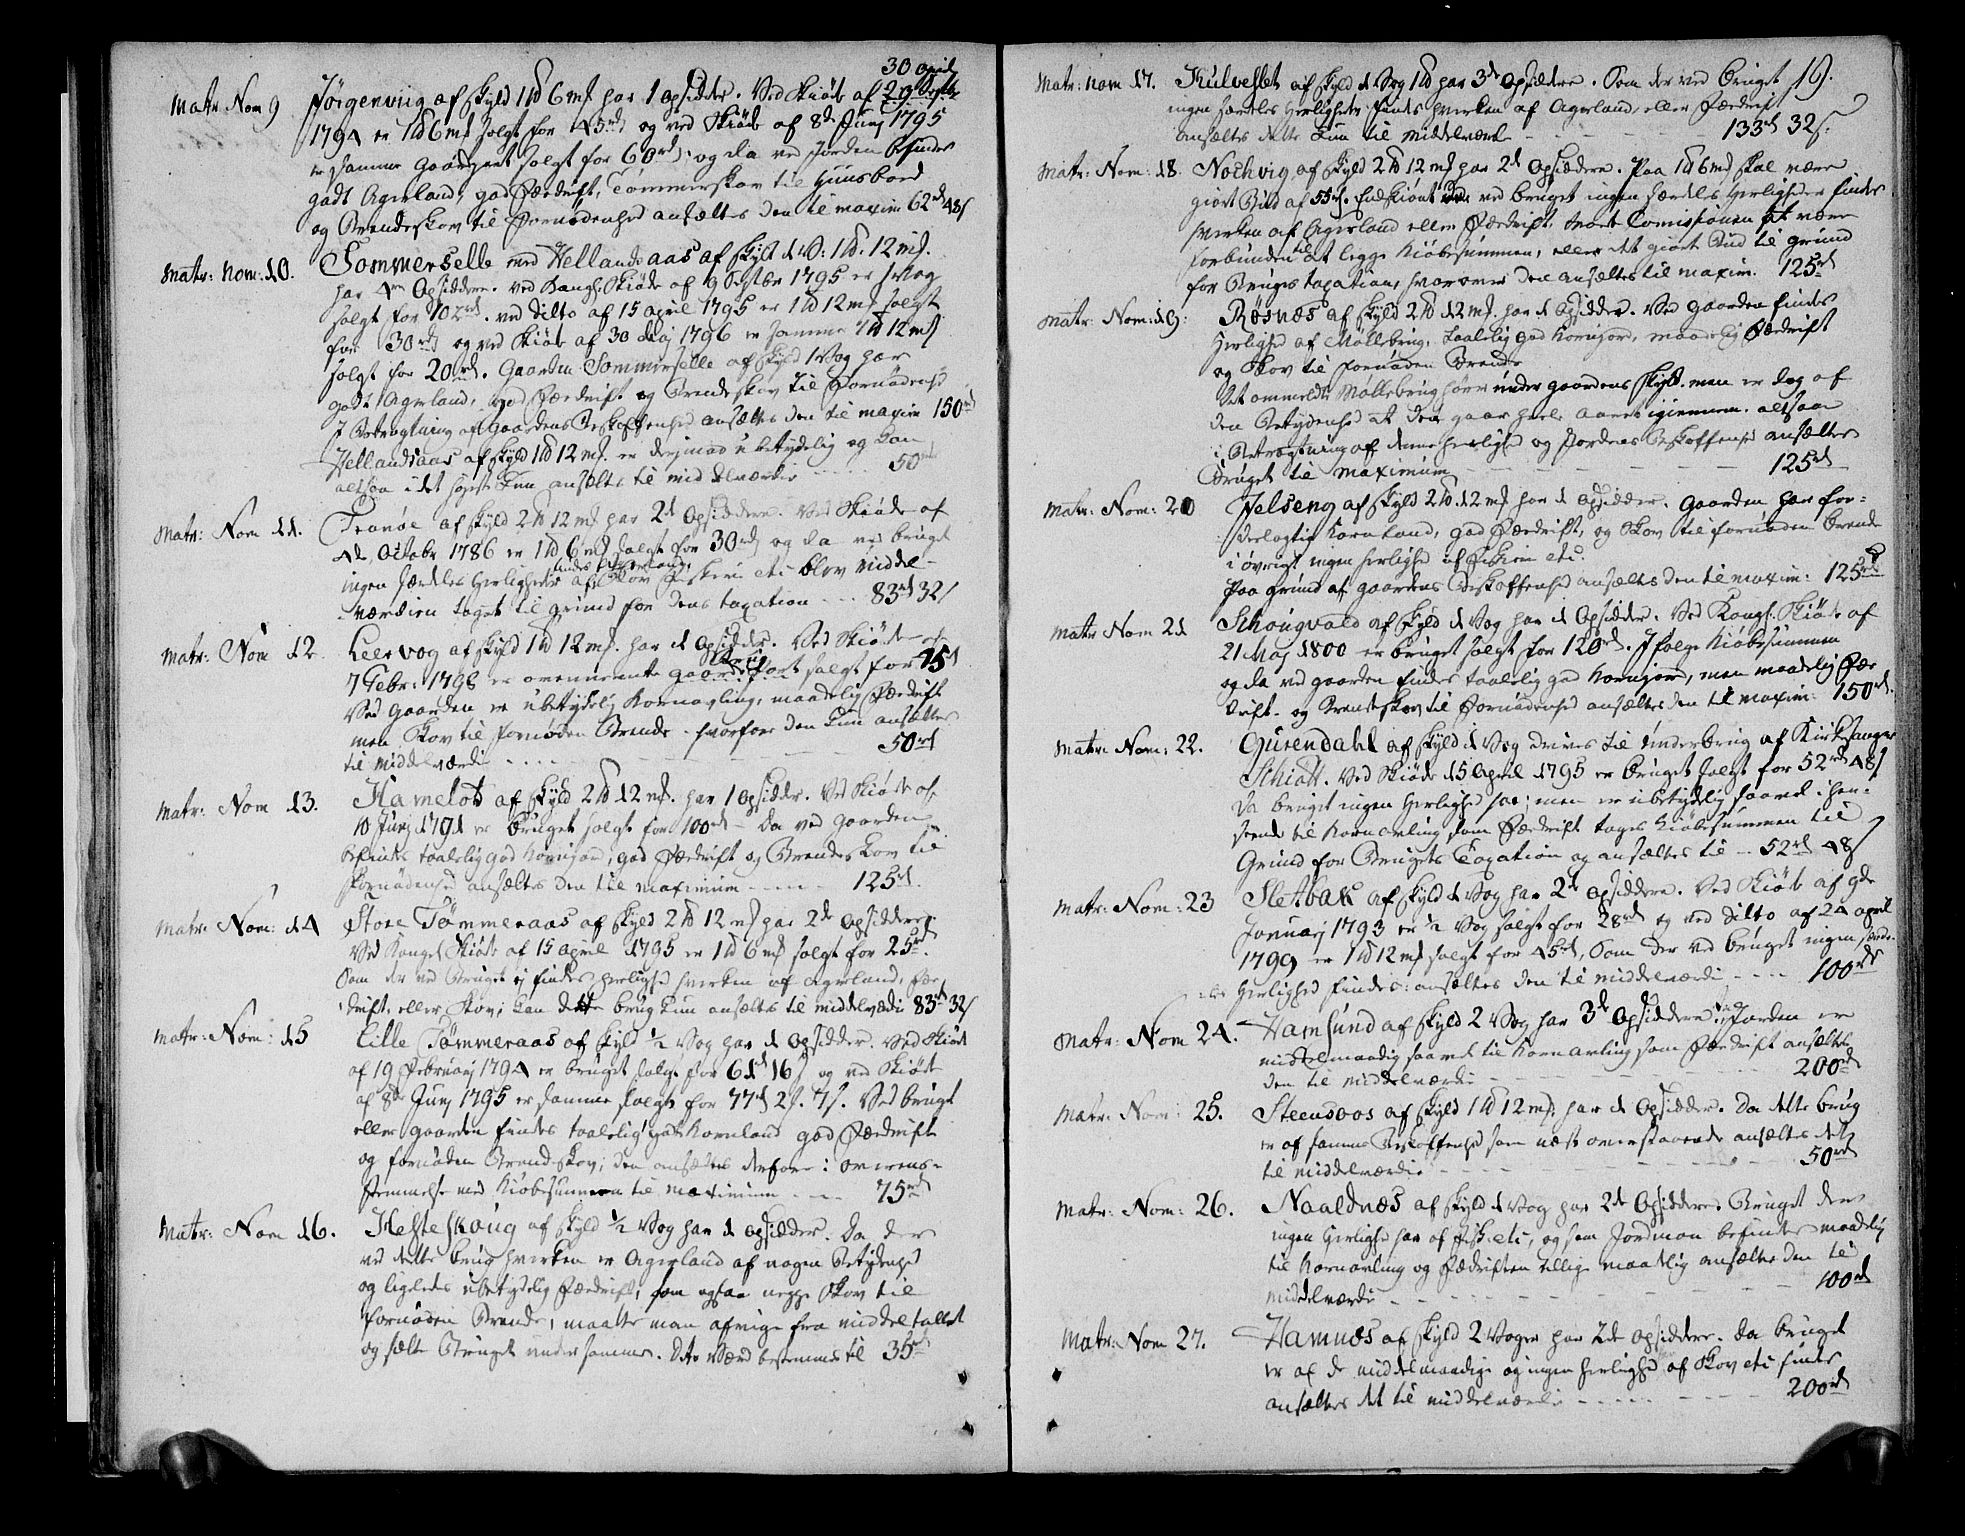 30 April
Matr Nom 9 Jørgenviig af Skyld 1 ℔ 6 mk har 1 Opsidder. Ved Skiøde af 29 Septbr
1794 er 1 ℔ 6 mk solgt for 45 rd og ved Skiøde af 8de Junj 1795
er samme Gaardpart solgt for 60 rd; og da ved Jorden befindes
godt Agerland, god Fædrift, Tømmerskov til Huusbord
og Brendeskov til Fornødenhed ansættes den til maxim 62 rd 48 s
Matr: Nom: 10. Sommerselle med Hellandsaas af Skyld 1 V: 1 ℔. 12 mk.
har 4re Opsiddere. Ved Kongl. Skiøde af 9 Septbr 1795 er 1 Vog
solgt for 102 rd. ved Ditto af 15 april 1795 er 1 ℔ 12 mk solgt
for 30 rd og ved Skiøde af 30 Maj 1796 er samme 1 ℔ 12 mk
solgt for 20 rd. Gaarden Sommerselle af Skyld 1 Vog har
godt Agerland, god Fædrift og Brendeskov til Fornødenhed
I Betragtning af Gaardens Beskaffenhed ansættes den til maxim 150 rd
Hellandsaas af Skyld 1 ℔ 12 mk. er derjmod ubetydelig og kan
altsaa i det høieste kun ansættes til middelværdie 50 rd
Matr: Nom 11. Tranøe af Skyld 2 ℔ 12 mk har 2de Opsiddere. Ved Skiøde af
4de Octobr 1786 er 1 ℔ 6 mk solgt for 30 rd og da ved bruget
ingen særdeles Herligheder findes af Skov Fiskeri etc blev middel-
værdien taget til Grund for dens taxation - - - 83 rd 32 s
Matr: Nom 12. Leervog af Skyld 1 ℔ 12 mk. har 1 Opsidder. Ved Skiøde af
7 Febr: 1798 er ovennevnte gaardepart solgt for 75 rd
Ved Gaarden er ubetydelig Kornavling, maadelig Fædrift
men Skov til fornøden Brende - hvorfor den kun ansættes
til middelværdi - - - - 50 rd
Matr: Nom 13. Hamelot af Skyld 2 ℔ 12 mk. har 1 Opsidder. Ved Skiøde af
10 Junj 1791 er Bruget solgt for 100 rd - Da ved Gaarden
befindes taalelig god Kornjord, god Fædrift og Brendeskov til
Fornødenhed ansættes den til maximum - - - - 125 rd.
Matr: Nom: 14 Store Tømmeraas af Skyld 2 ℔ 12 mk har 2de Opsiddere.
Ved Kongel Skiøde af 15 april 1795 er 1 ℔ 6 mk solgt for 25 rd.
Som der ved Bruget ej findes herlighed hverken af Agerland, Fæe
drift, eller Skov; kan dette brug kun ansættes til middelværdi 83 rd 32 s
Matr: Nom: 15 Lille Tømmeraas af Skyld ½ Vog har 1 Opsidder. Ved Skiøde
af 19 Februarj 1794 er bruget solgt for 61 rd 16 s og ved Skiøde
af 8de Junj 1795 er samme solgt for 77 rd 2 s. 7 s. Ved bruget
eller gaarden findes taalelig godt Kornland god Fædrift
og fornøden Brendeskov; den ansættes derfore i overens-
stemmelse med Kiøbesummen til maximum - - - 75 rd
Matr: Nom 16. Hesteskoug af Skyld ½ Vog har 1 Opsidder. Da der
ved dette brug hverken er Agerland af nogen Betydenhed
og ligeledes ubetydelig Fædrift, som ogsaa neppe Skov til
fornøden Brende, maatte man afvige fra middeltallet
og sætte Bruget under samme. Dets Værd bestemmes til 35 rd
19.
Matr: Nom 17. Kulvesset af Skyld 1 Vog 1 ℔ har 3de Opsiddere. Som der ved bruget
ingen særdeles Herligheder findes hverken af Agerland eller Fædrift
ansættes dette kun til middelværd - - - 133 rd 32 s.
Matr: Nom: 18. Nochvig af Skyld 2 ℔ 12 mk har 2de Opsiddere. Paa 1 ℔ 6 mk skal være
giort Bud af 55 rd. Endskiønt ved bruget ingen særdeles Herligheder findes
hverken af Agerland eller Fædrift, troer Comissionen at være
forbunden til at legge Kiøbesummen, eller det giorte Bud til grund
for Brugets taxation, hvorover den ansættes til maxim. 125 rd
Matr: Nom: 19: Røsnæs af Skyld 2 ℔ 12 mk. har 1 Opsidder. Ved gaarden findes
Herlighed af Møllebrug, taalelig god Kornjord, maadelig Fædrift
og Skov til fornøden Brende
Det ommeldte Møllebrug hører under gaardens Skyld. men er dog af
den Betydenhed at det gaar heele aaret igiennem. altsaa
i Betragtning af denne herlighed og Jordens Beskaffenhed ansættes
Bruget til maximum - - - 125 rd
Matr: Nom: 20 Jelseng af Skyld 2 ℔ 12 mk har 1 Opsidder. Gaarden har for-
deelagtig Kornland, god Fædrift, og Skov til fornøden brende
i øvrigt ingen herlighed af Fiskeri etc.
Paa grund af gaardens Beskaffenhed ansættes den til maxim: 125 rd
Matr Nom 21 Schougvald af Skyld 1 Vog har 1 Opsidder. Ved Kongl. Skiøde af
21 Maj 1800 er bruget solgt for 120 rd. Ifølge Kiøbesummen
og da ved gaarden findes taalelig god Kornjord, men maadelig Fæe
drift. og Brendeskov til Fornødenhed ansættes den til maxim: 150 rd.
Matr: Nom: 22. Gurendahl af Skyld 1 Vog drives til Underbrug af Kirkesanger
Schiøtt. Ved Skiøde 15 april 1795 er bruget solgt for 52 rd 48 s
Da bruget ingen Herlighed har; men er ubetydelig saavel i hen-
seende til Kornavling som Fædrift tages Kiøbesummen til
Grund for Brugets Taxation og ansættes til - 52 rd 48 s
Matr: Nom: 23 Sletbak af Skyld 1 Vog har 2de Opsiddere. Ved Skiøde af 9de
Januarj 1793 er ½ Vog solgt for 28 rd og ved Ditto af 24 april
1799 er 1 ℔ 12 mk solgt for 45 rd, Som der ved bruget ingen særde-
les Herlighed findes: ansættes den til middelværdi - - - 100 rd
Matr: Nom 24. Hamsund af Skyld 2 Vog har 3de Opsiddere. Jorden er
middelmaadig saavel til Kornavling som Fædrift ansættes
den til middelværdi - - - 200 rd
Matr: Nom: 25. Steensoos af Skyld 1 ℔ 12 mk har 1 Opsidder. Da dette brug
er af samme Beskaffenhed som næst ovenstaaende ansættes det
til middelværdie - - - 50 rd
Matr: Nom: 26. Naaldnæs af Skyld 1 Vog har 2de Opsiddere. Bruget der
ingen Herlighed har af Fisk etc, og som Jordmon befindes maadelig
til Kornavling og Fædriften tillige maadelig ansættes den til
middelværdi - - - 100 rd
Matr: Nom 27. Hamnæs af Skyld 2 Voger har 2de Opsiddere. Da bruget
er af de middelmaadige og ingen herlighed af Skov etc findes
ansættes det til middelværdi - - - 200 rd